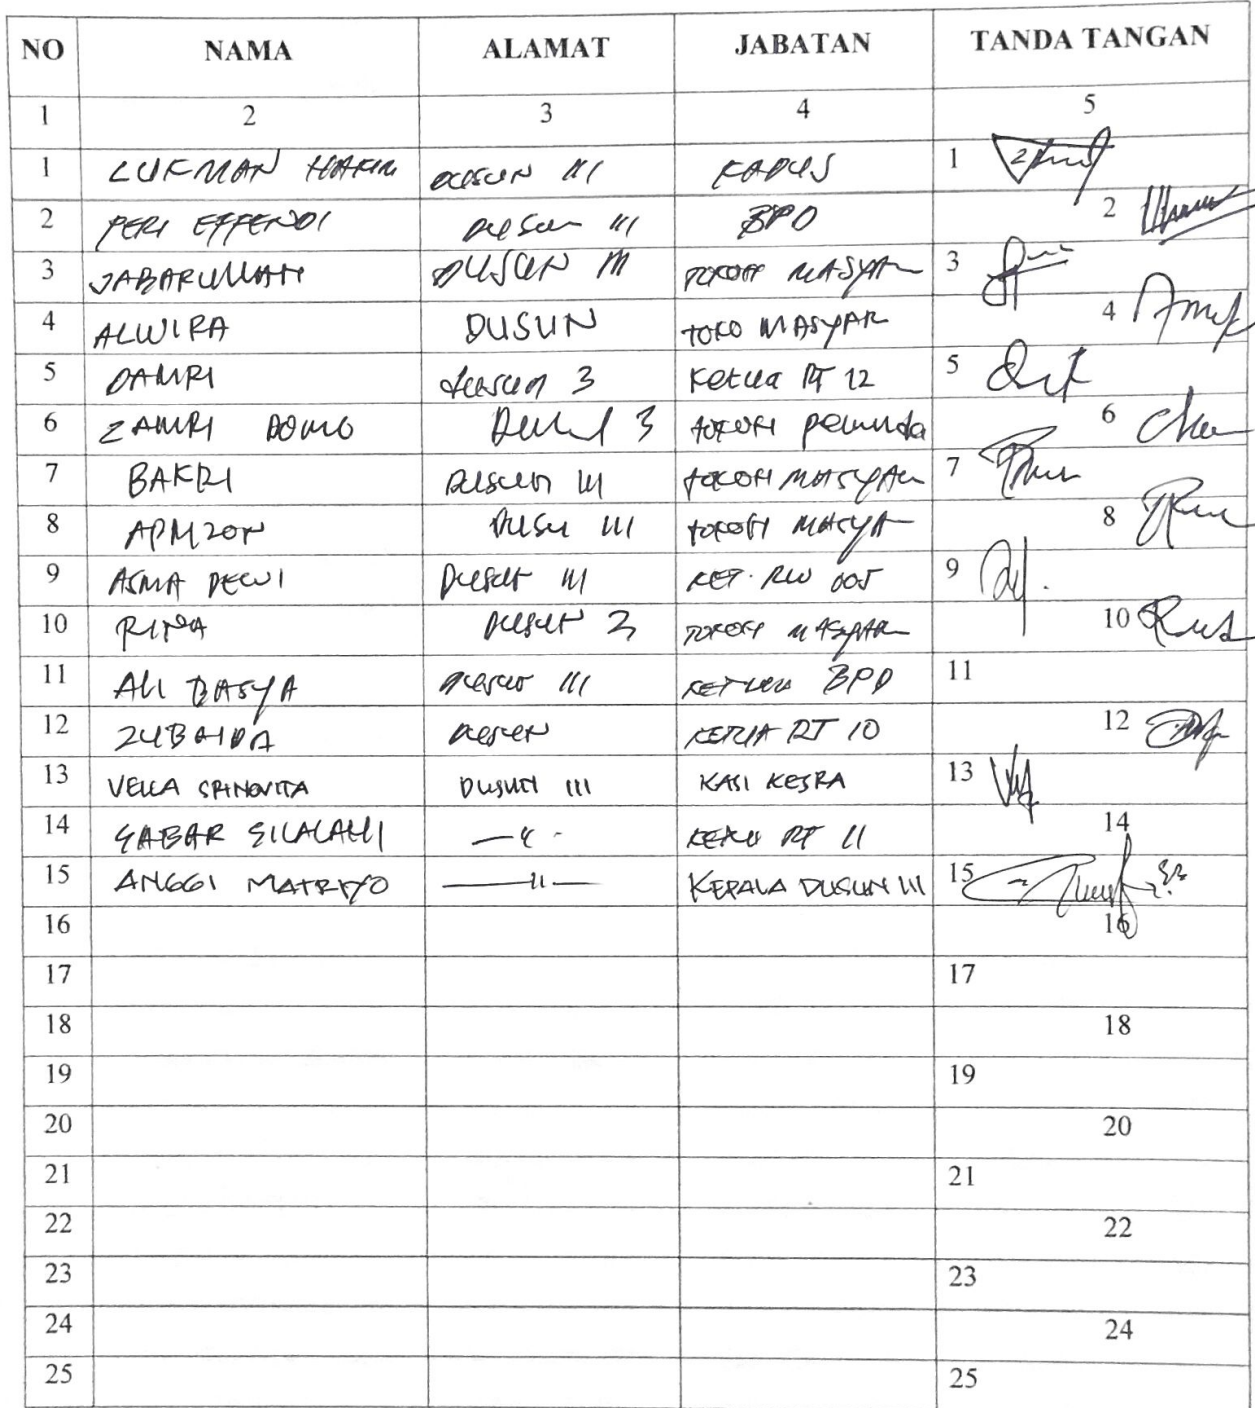 NO NAMA ALAMAT JABATAN TANDA TANGAN
1 2 3 4 5
1 LUKMAN HAKIM DUSUN III KADUS 1
2 PERI EFFENDI DUSUN III BPD 2
3 JABARULLAH DUSUN III TOKOH MASYAR 3
4 ALWIRA DUSUN TOKO MASYAR 4
5 DAMRI dusun 3 Ketua RT 12 5
6 ZAMRI DOMO 3 TOKOH pemuda 6
7 BAKRI DUSUN III TOKOH MASYAR 7
8 APMIZON DUSU III TOKOH MASYA 8
9 ASMA DEWI DUSUN III KET. RW 005 9
10 RINA DUSUN 3 TOKOH MASYAR 10
11 ALI BASYA DUSUN III KETUA BPD 11
12 ZUBAIDA DUSUN KETUA RT 10 12
13 VELLA SPINOVITA DUSUN III KASI KESRA 13
14 SABAR SILALAHI — " - RT 11 14
15 ANGGI MATRIYO — " — KEPALA DUSUN III 15
16 16
17 17
18 18
19 19
20 20
21 21
22 22
23 23
24 24
25 25